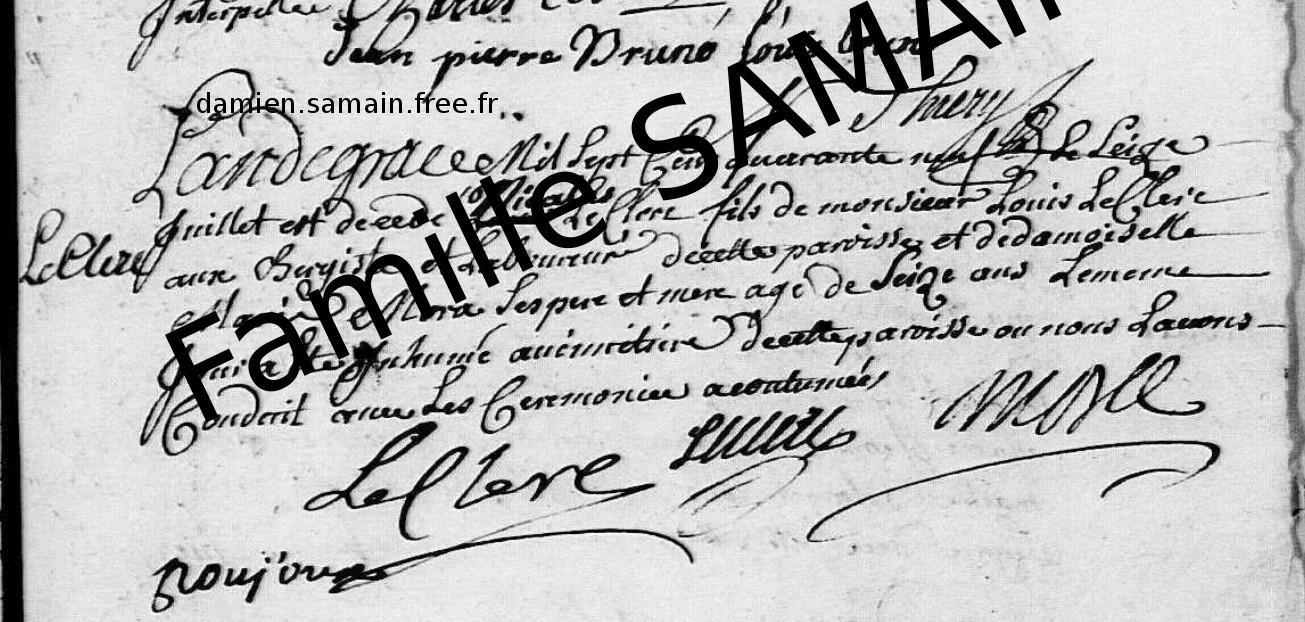 Interpellé Charles
Jean pierre Bruno Louis
Thiery
damien.samain.free.fr
Famille SAMAIN
Landegrace Mil Sept Cent quarante neuf Le Seize
Juillet est decede Nicolas LeClerc fils de monsieur Louis LeClerc
LeClerc
aux et Laboureur decette paroisse et dedamoiselle
Marie Ses pere et mere agé de Seize ans Lememe
Jour a Ete Inhumé aucimetiere decette paroisse ou nous Lavons
Conduit avec Les Ceremonies acoutumées
LeClerc
Goujon